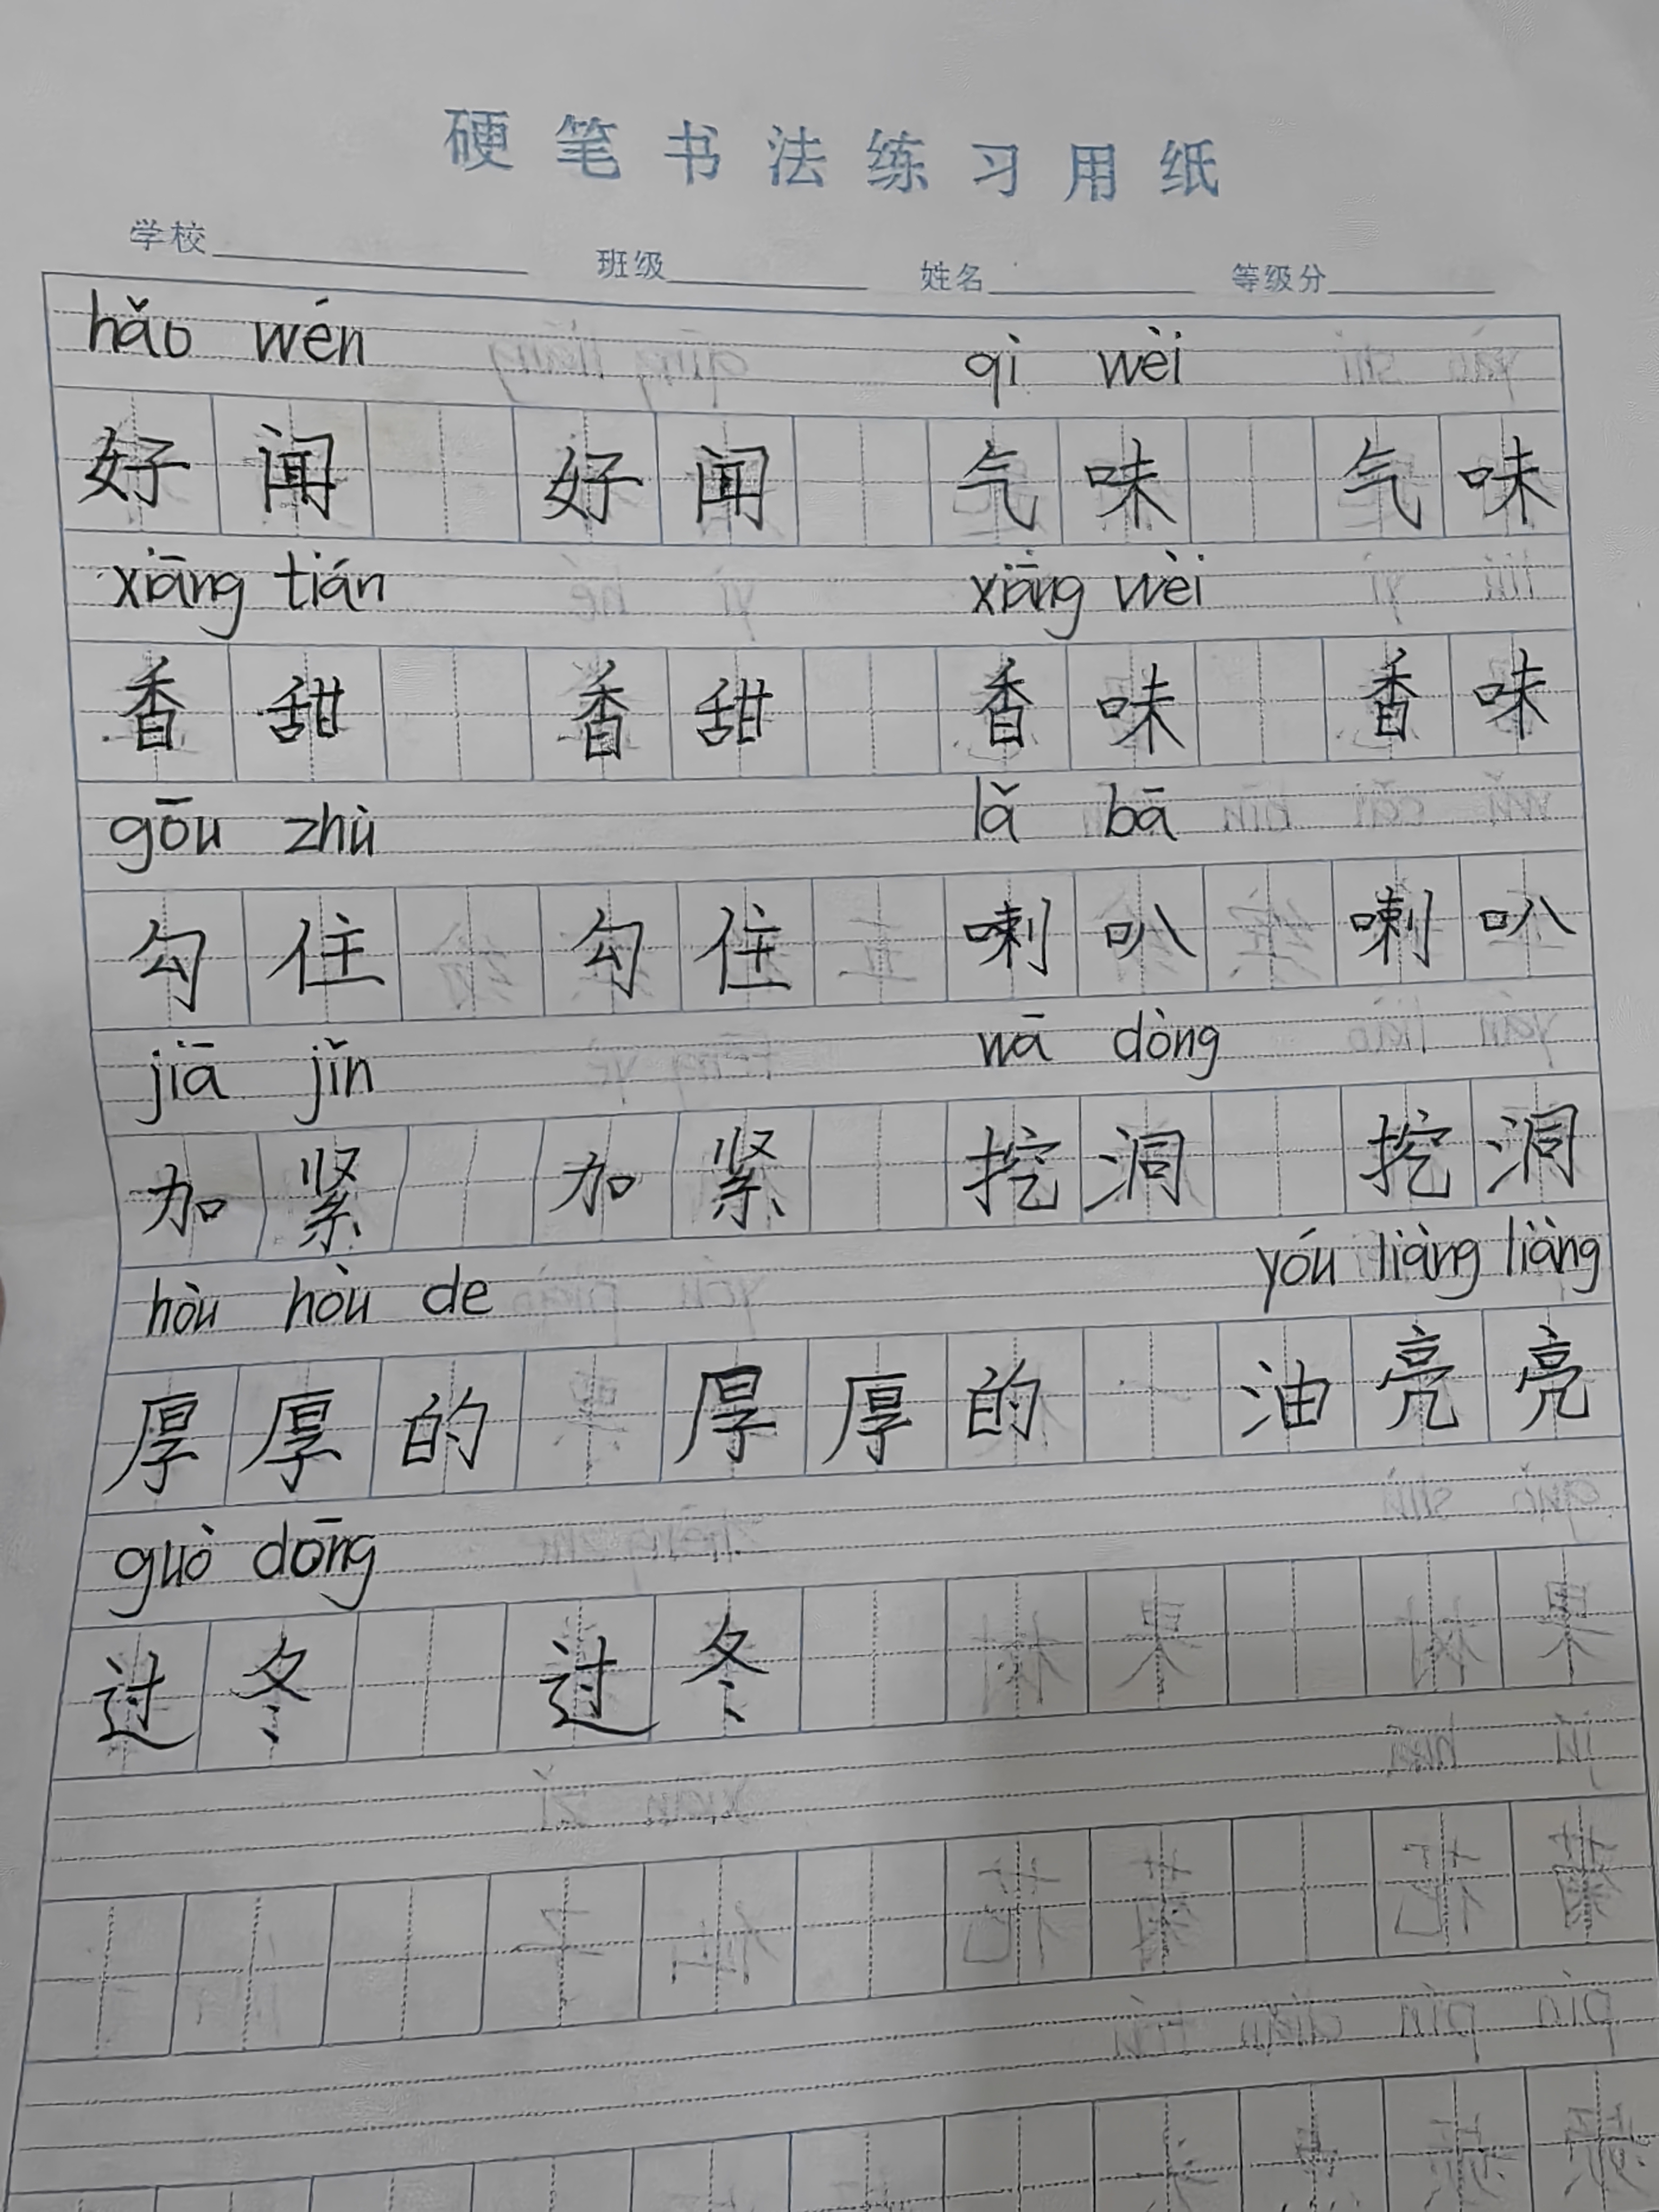 硬笔书法练习用纸
学校 班级 姓名 等级分
hǎo wén qì wèi
好闻 好闻 气味 气味
xiāng tián xiāng wèi
香甜 香甜 香味 香味
gōu zhù lǎ bā
勾住 勾住 喇叭 喇叭
jiā jǐn wā dòng
加紧 加紧 挖洞 挖洞
hòu hòu de yóu liàng liàng
厚厚的 厚厚的 油亮亮
guò dōng
过冬 过冬